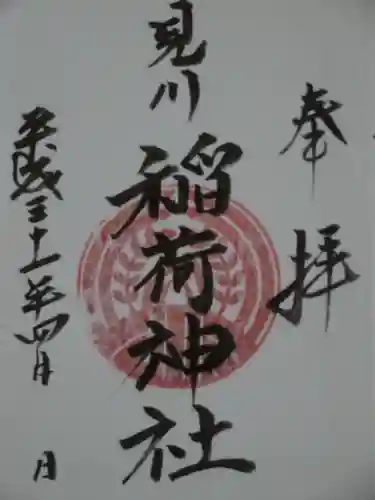 奉拝
見川
稲荷神社
平成三十一年四月 月